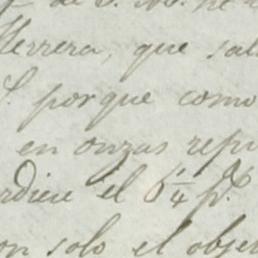 de S. M. he
Herrera, que sal
S. porque como
en onzas repu
rdiere el 6 1/4 p.
on solo el objet